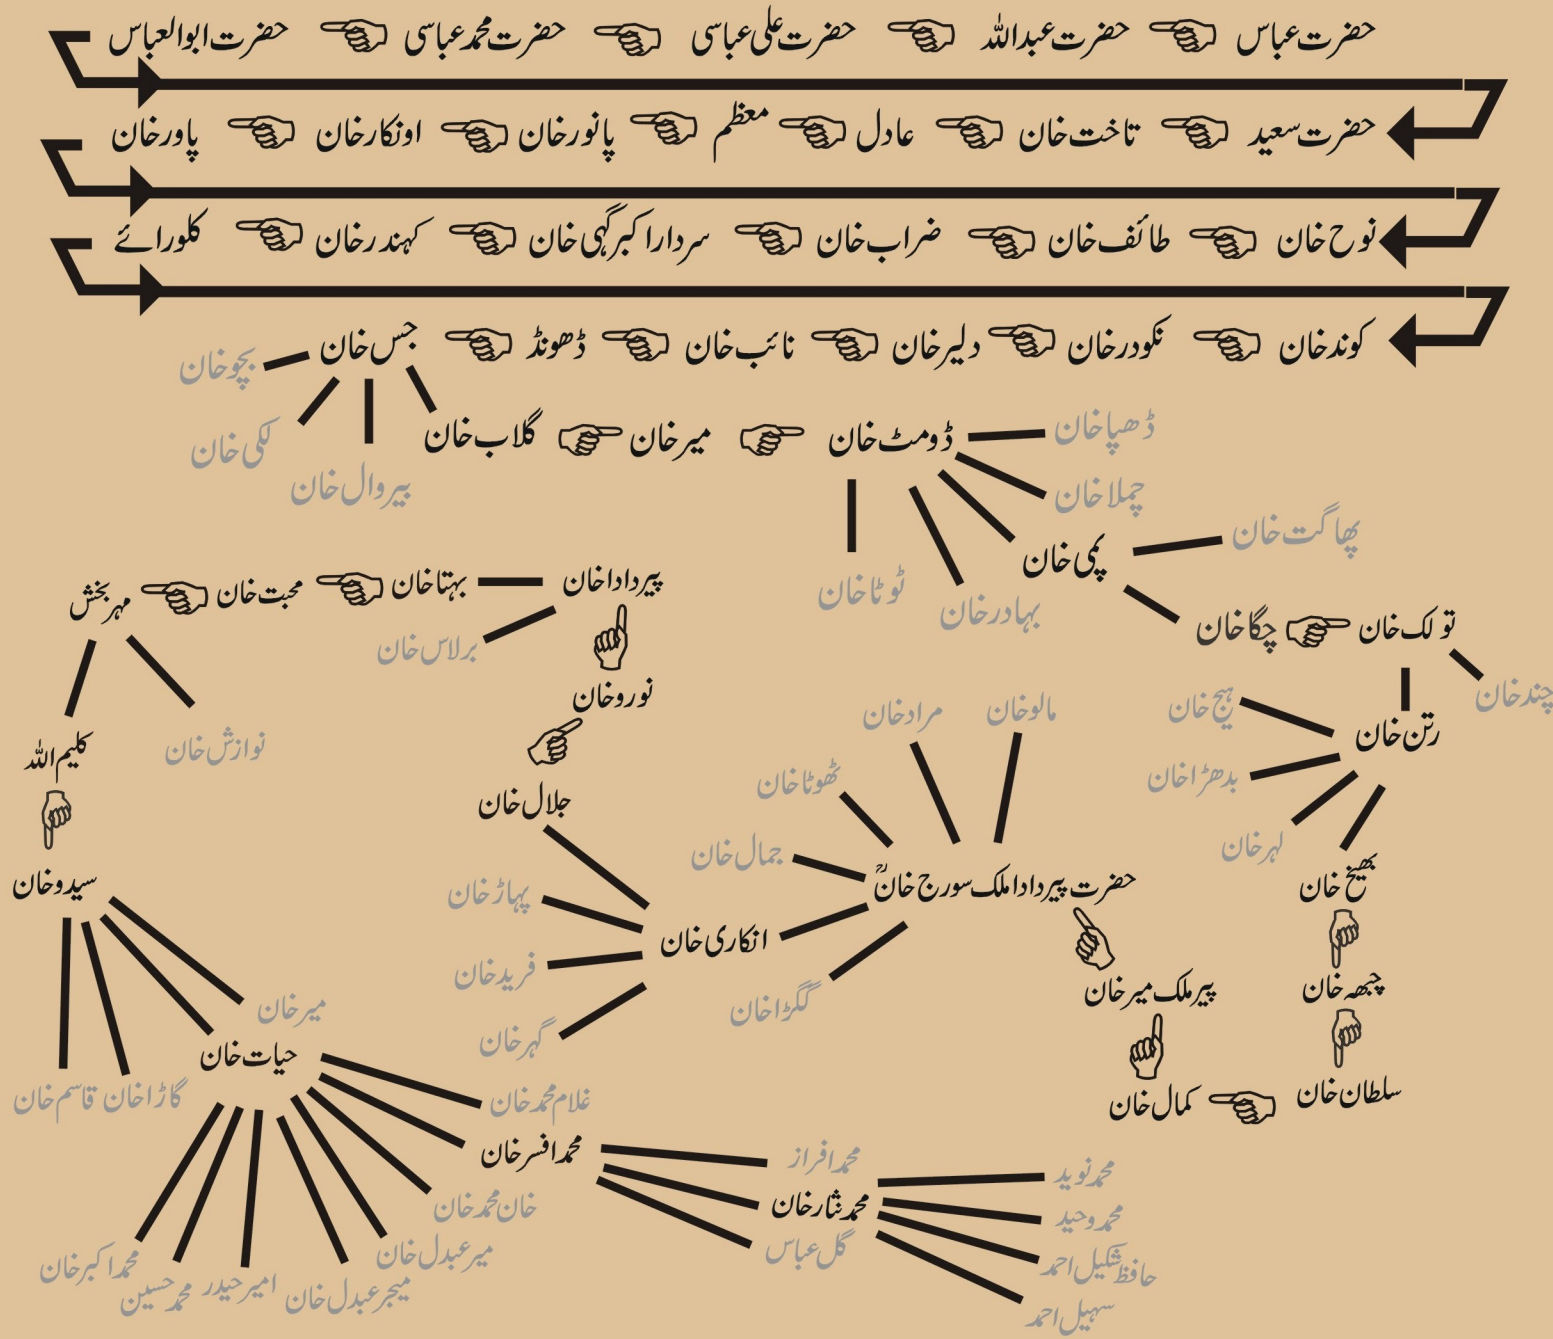 حضرت عباس ☜ حضرت عبداللہ ☜ حضرت علی عباسی ☜ حضرت محمد عباسی ☜ حضرت ابوالعباس
حضرت سعید ☜ تاخت خان ☜ عادل ☜ معظم ☜ پانور خان ☜ اونکار خان ☜ پاور خان
نوح خان ☜ طائف خان ☜ ضراب خان ☜ سردار اکبر گہی خان ☜ کہندر خان ☜ کلورائے
کوند خان ☜ نکودر خان ☜ دلیر خان ☜ نائب خان ☜ ڈھونڈ ☜ جس خان
بچو خان
لکی خان
بیروال خان
گلاب خان ☞ میر خان ☞ ڈومٹ خان
ڈھپا خان
چملا خان
پمی خان
بہادر خان
ٹوٹا خان
پھاگت خان
چگا خان ☞ تو لک خان
چند خان
رتن خان
ہیج خان
بدھڑا خان
لہر خان
بھیخ خان
چبھہ خان
سلطان خان ☜ کمال خان
پیر ملک میر خان
حضرت پیر دادا ملک سورج خانؒ
مالو خان
مراد خان
ٹھوٹا خان
جمال خان
انکاری خان
گگڑا خان
جلال خان
پہاڑ خان
فرید خان
گہر خان
نورو خان
پیر دادا خان
بہتا خان ☜ محبت خان ☜ مہر بخش
برلاس خان
نوازش خان
کلیم اللہ
سیدو خان
میر خان
حیات خان
گاڑا خان
قاسم خان
غلام محمد خان
محمد افسر خان
خان محمد خان
میر عبدل خان
میجر عبدل خان
امیر حیدر
محمد حسین
محمد اکبر خان
محمد افراز
محمد نثار خان
گل عباس
محمد نوید
محمد وحید
حافظ شکیل احمد
سہیل احمد